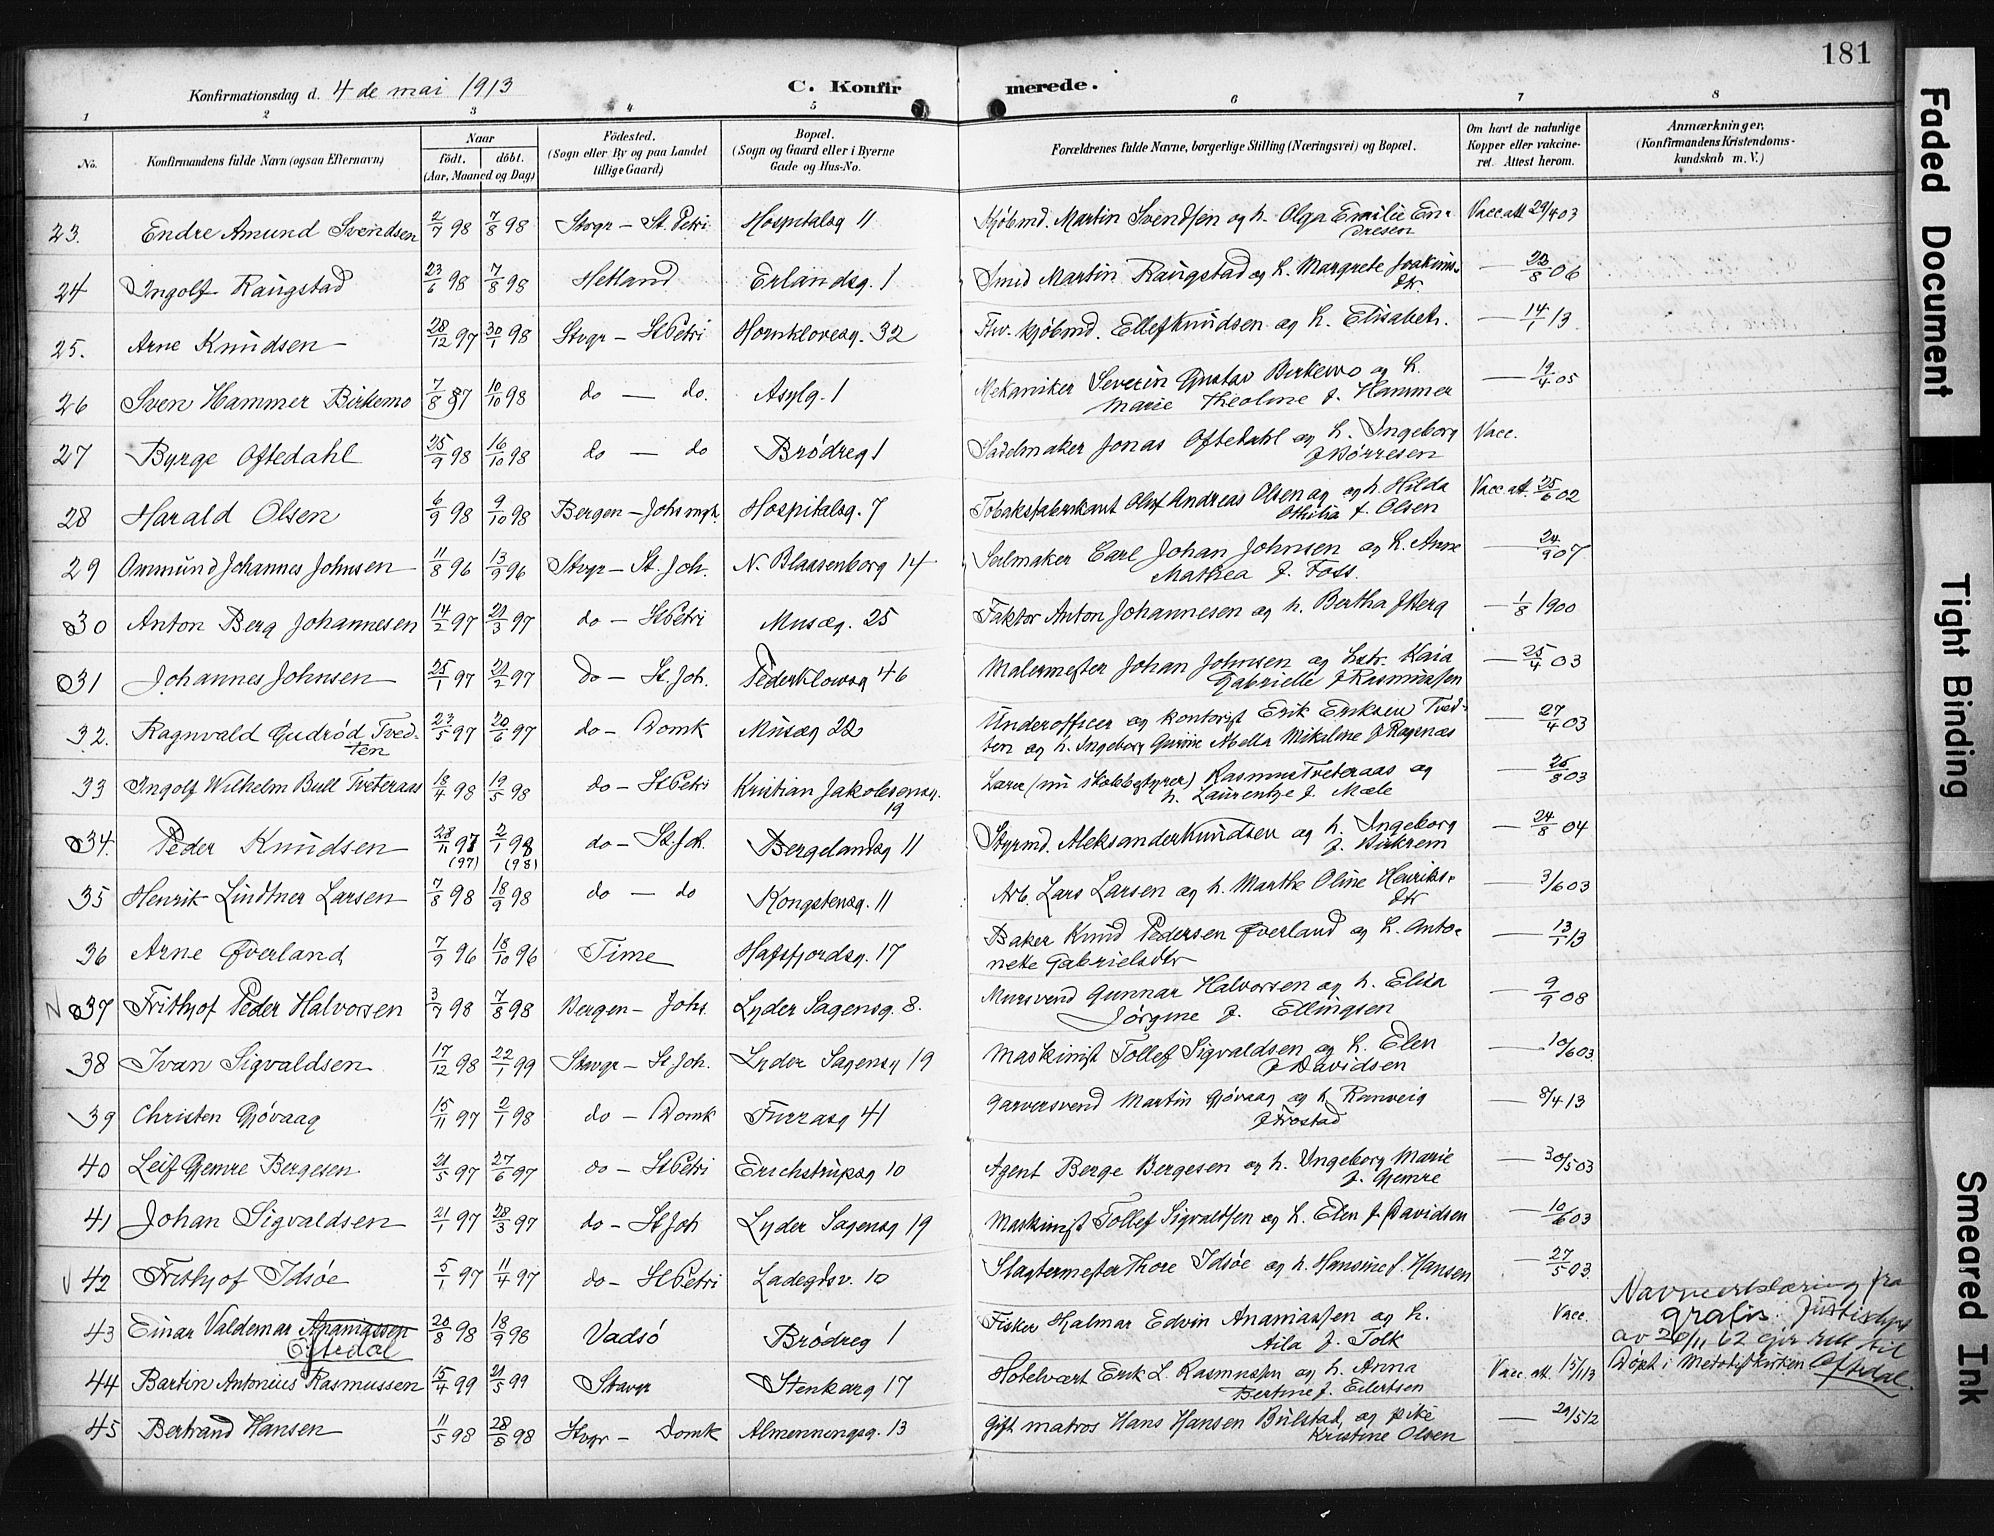 181
Konfirmationsdag d. 4 de mai 1913 C. Konfirmerede.
1 2 3 4 5 6 7 8
No. Konfirmandens fulde Navn (ogsaa Efternavn) Naar födt. döbt. (Aar, Maaned og Dag) Födested. (Sogn eller By og paa Landet tillige Gaard) Bopæl. (Sogn og Gaard eller i Byerne Gade og Hus-No. Forældrenes fulde Navne, borgerlige Stilling (Næringsvei) og Bopæl. Om havt de naturlige Kopper eller vaccineret. Attest herom. Anmærkninger. (Konfirmandens Kristendomskundskab m. V.)
23. Endre Amund Svendsen 2/7 98 7/8 98 Stvgr – St. Petri Hospitalsg 11 Kjøbmd. Martin Svendsen og h. Olga Emilie Endresen Vacc att 29/4 03
24 Ingolf Raugstad 23/6 98 7/8 98 Hetland Erlandsg. 1 Smid Martin Raugstad og h. Margrete Joakimsdtr. — 22/8 06
25. Arne Knudsen 28/12 97 30/1 98 Stvgr – St Petri Hornklovesg. 32 Fhv. kjøbmd. Ellef Knudsen og h. Elisabeth. — 14/1 13
26 Sven Hammer Birkemo 7/8 97 10/10 98 do — do. Asylg. 1 Mekaniker Severin Gustav Birkemo og h. Marie Theoline f. Hammer — 19/4 05
27 Byrge Oftedahl 25/9 98 16/10 98 do — do Brødreg 1 Sadelmaker Jonas Oftedahl og h. Ingeborg f Børresen Vacc.
28 Harald Olsen 6/9 98 9/10 98 Bergen – Johs mgh. Hospitalsg. 7 Tobaksfabrikant Oluf Andreas Olsen og og h. Hilda Othilia f. Olsen Vacc att. 25/6 02
29 Ommund Johannes Johnsen 11/8 96 13/9 96 Stvgr – St. Joh. N. Blaasenborg 14 Seilmaker Carl Johan Johnsen og h. Anne Mathea f. Foss. — 24/9 07
30 Anton Berg Johannesen 14/2 97 21/3 97 do – St Petri Musæg. 25 Faktor Anton Johannesen og h. Bertha f Berg — 1/8 1900
31 Johannes Johnsen 25/1 97 21/2 97 do – St. Joh. Pederklowsg 46 Malermester Johan Johnsen og hstr. Kaia Gabrielle f Rasmussen — 25/4 03
32. Ragnvald Gudrød Tvedten 23/5 97 20/6 97 do – Domk Musæg 22 Underofficer og kontorist Erik Eriksen Tvedten og h. Ingeborg Abella Mikaline f Ragenæs — 27/4 03
33 Ingolf Wilhelm Bull Tveteraas 18/4 98 19/5 98 do – St Petri Kristian Jakobsensg. 19 Lærer (nu skolebestyrer) Rasmus Tveteraas og h. Laurentze f. Mæle — 26/8 03
34. Peder Knudsen 28/11 97 (97) 2/1 98 (98) do – St. Joh. Bergelandsg 11 Styrmd. Aleksander Knudsen og h. Ingeborg f. Birkrem — 24/8 04
35 Henrik Lindtner Larsen 7/8 98 18/9 98 do — do Kongstensg. 11 Arb. Lars Larsen og h. Marthe Oline Henriksdtr — 3/6 03
36 Arne Øverland 7/9 96 18/10 96 Time Hafsfjordsg. 17 Baker Knud Pedersen Øverland og h. Antonette Gabrielsdtr — 13/1 13
37 Frithjof Peder Halvorsen 3/7 98 7/8 98 Bergen – Johs. Lyder Sagensg. 8. Mursvend Gunnar Halvorsen og h. Elisa Jørgine f. Ellingsen — 9/9 08
38 Ivan Sigvaldsen 17/12 98 22/1 99 Stavgr – St Joh. Lyder Sagensg 19 Maskinist Tollef Sigvaldsen og h. Elen f Davidsen — 10/6 03
39 Christen Gjøvaag 15/11 97 2/1 98 do – Domk Furrasg 41 Garversvend Martin Gjøvaag og h Ranveig f Frostad — 8/4 13
40 Leif Gjemre Bergesen 21/5 97 27/6 97 do – St Petri Erichstrupsg 10 Agent Berge Bergesen og h. Ingeborg Marie f. Gjemre — 30/5 03
41 Johan Sigvaldsen 21/1 97 28/3 97 do – St Joh Lyder Sagensg 19 Maskinist Tollef Sigvaldsen og h. Elen f Davidsen — 10/6 03
42 Frithjof Idsøe 5/1 97 11/4 97 do – St Petri Ladegdsv. 10 Slagtermester Thore Idsøe og h. Hansine f. Hansen — 27/5 03
43 Einar Valdemar Ananiassen Oftedal 20/8 98 18/9 98 Vadsö Brødreg 1 Fisker Hjalmar Edvin Ananiassen og h. Aila f. Tolk Vacc. Navneerklæring fra gratis Justisdept av 20/11 62 gir rett til Oftedal.
44 Bartin Antonius Rasmussen 15/4 99 21/5 99 Stavgr Stenkarg 17 Hotelvært Erik L. Rasmussen og h. Anna Bertine f. Eilertsen Vacc. att. 15/1 13 Døpt i Metodistkirken
45 Bertrand Hansen 11/5 98 28/8 98 Stvgr – Domk Almenningsg. 13 Gift matros Hans Hansen Bulstad, og pike Kristine Olsen — 29/5 12
Faded Document
Tight Binding
Smeared Ink